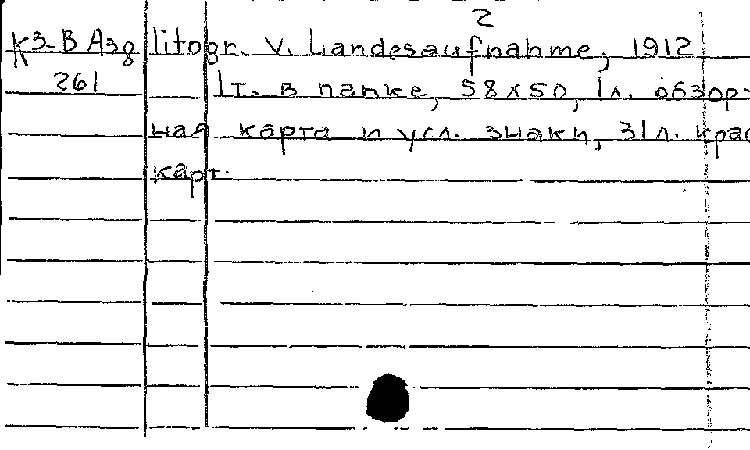 2
К3-В Азд litogr. v. Landesaufnahme, 1912
261 1т. в папке, 58x50, 1л. обзор-
ная карта и усл. знаки, 31л. крас
карт.